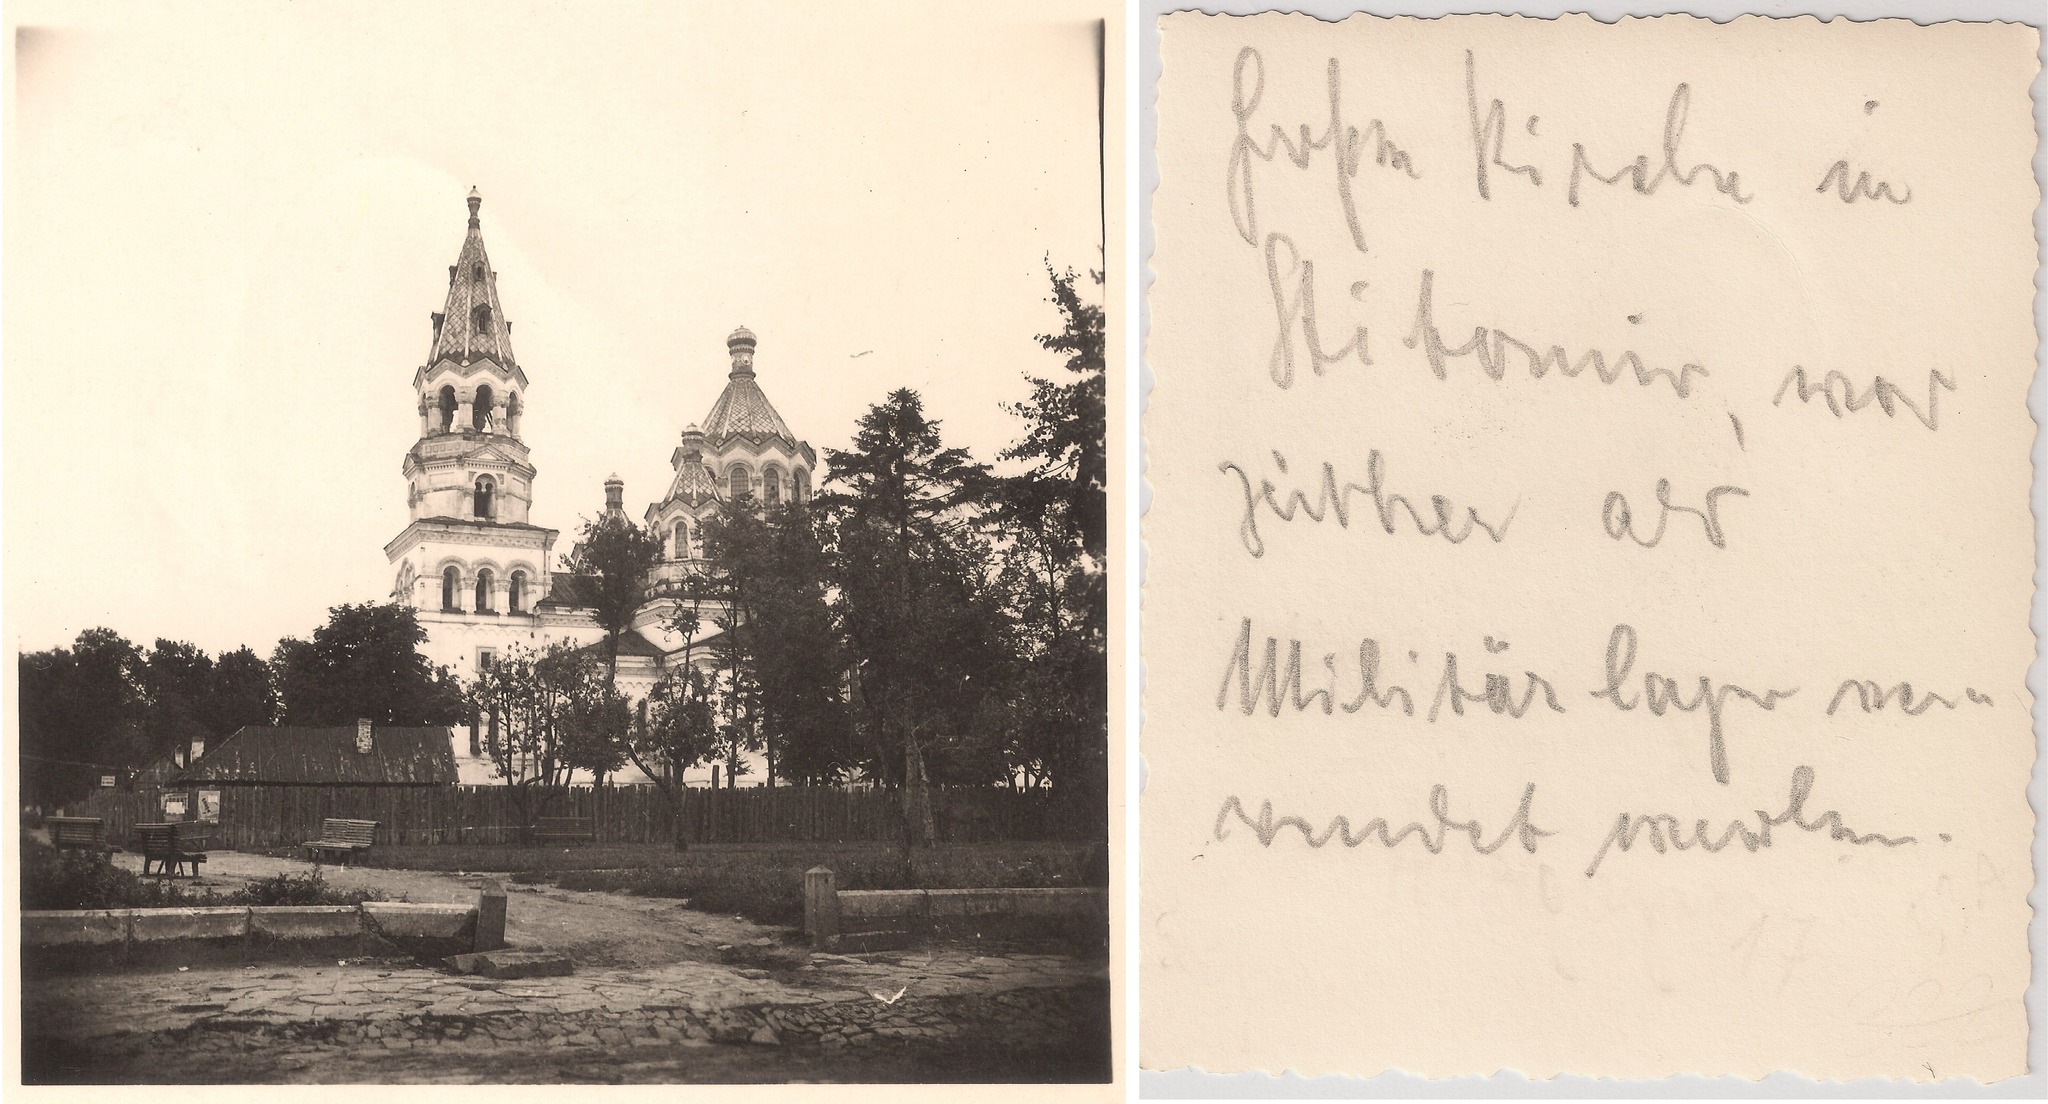 Große Kirche in
Stitomir, war
zeither als
Militärlager ver-
wendet worden.